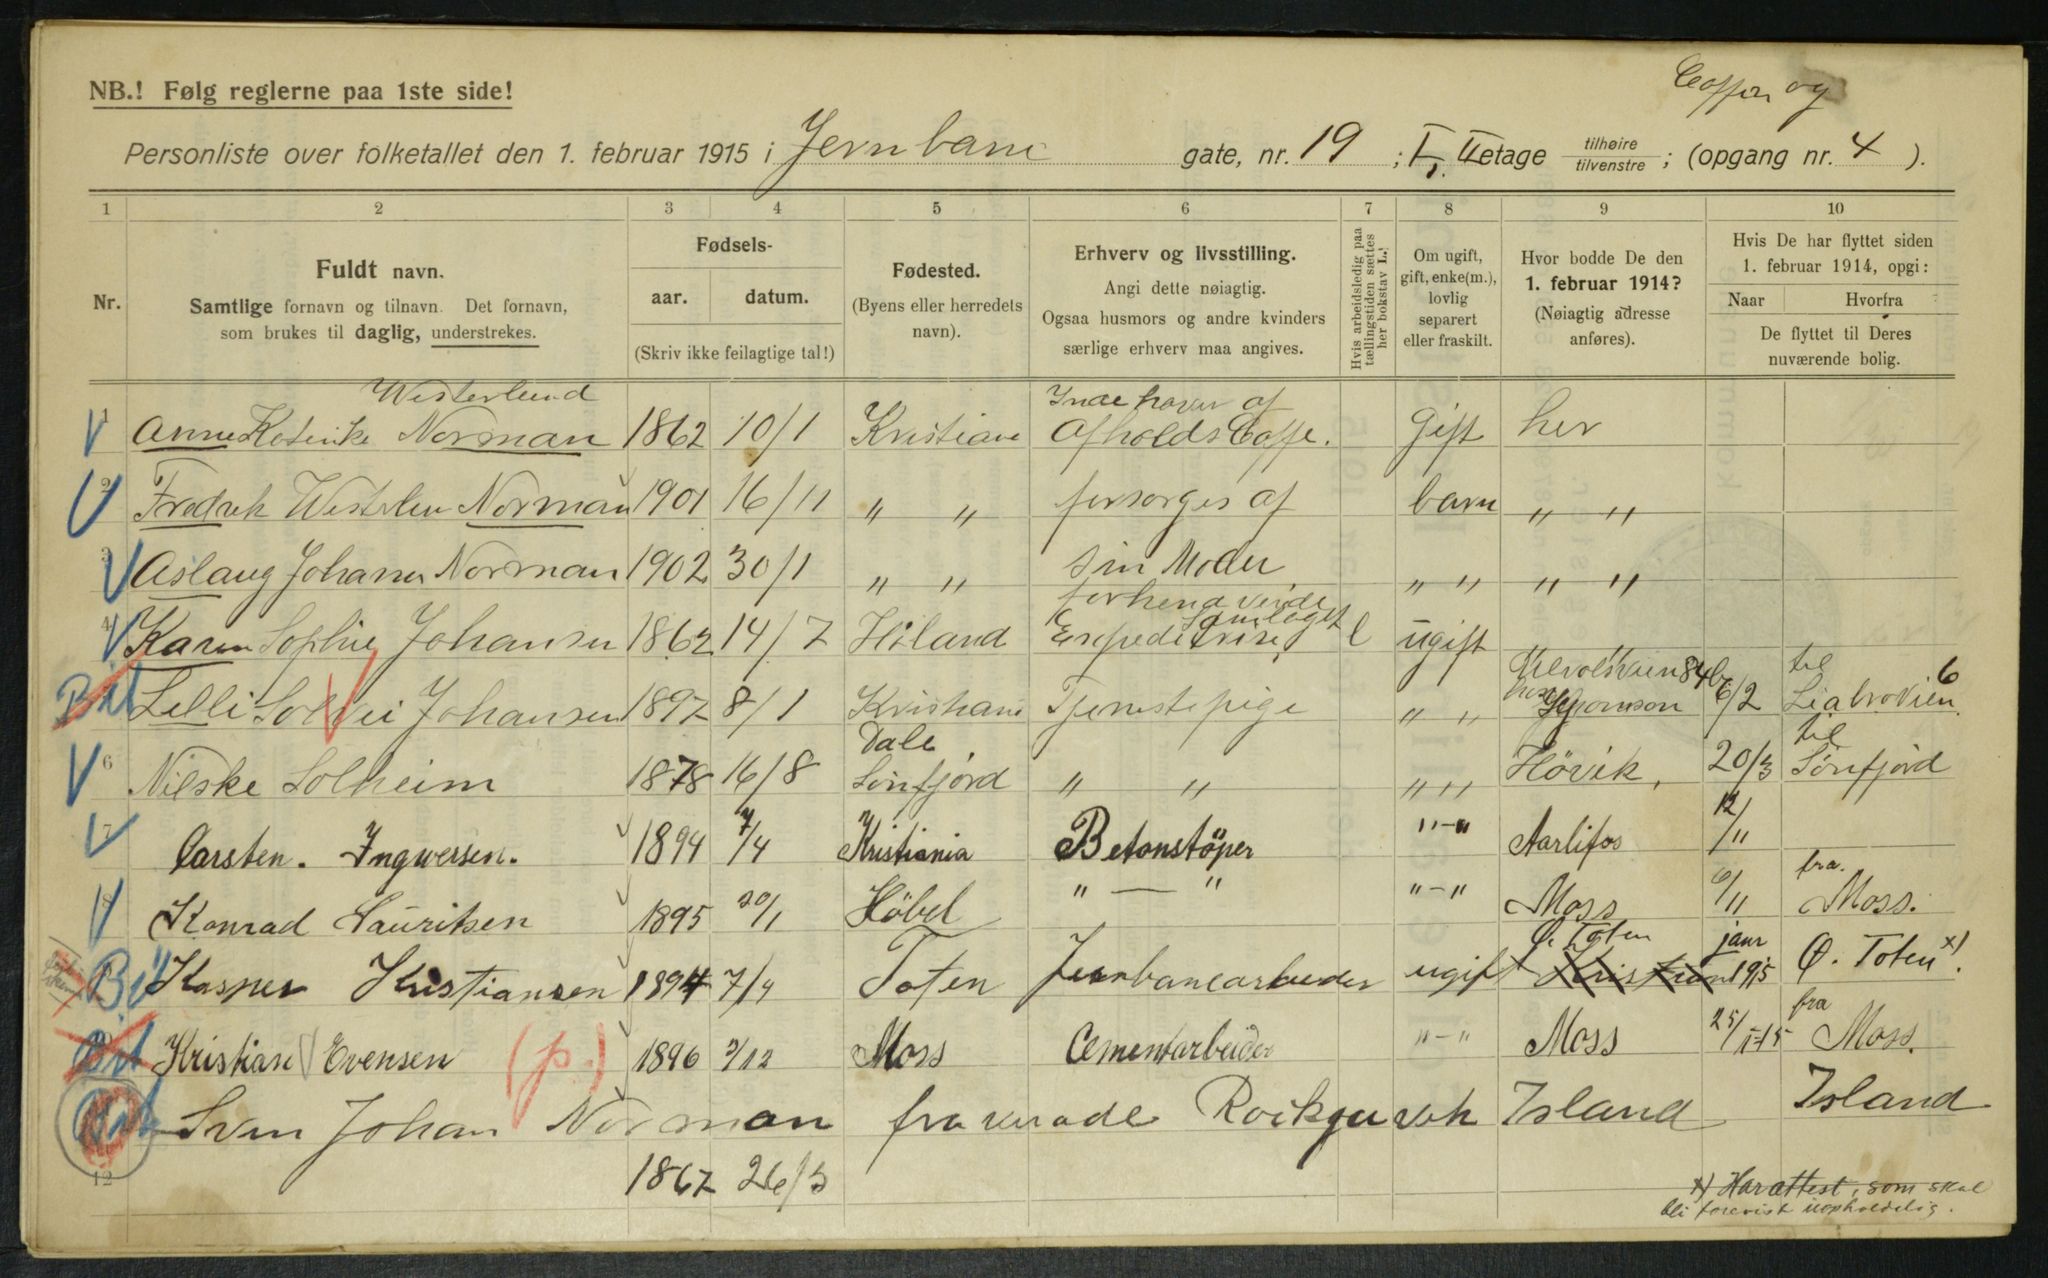 NB.! Følg reglerne paa 1ste side!
og
Personliste over folketallet den 1. februar 1915 i Jernbane gate, nr. 19 ; I, II etage tilhøire / tilvenstre ; (opgang nr. 4 ).
1 2 3 4 5 6 7 8 9 10
Nr.
Fuldt navn.
Samtlige fornavn og tilnavn. Det fornavn,
som brukes til daglig, understrekes.
Fødsels-
aar. datum.
(Skriv ikke feilagtige tal!)
Fødested.
(Byens eller herredets
navn).
Erhverv og livsstilling.
Angi dette nøiagtig.
Ogsaa husmors og andre kvinders
særlige erhverv maa angives.
Hvis arbeidsledig paa
tællingstiden sættes
her bokstav L.!
Om ugift,
gift, enke(m.),
lovlig
separert
eller fraskilt.
Hvor bodde De den
1. februar 1914?
(Nøiagtig adresse
anføres).
Hvis De har flyttet siden
1. februar 1914, opgi:
Naar Hvorfra
De flyttet til Deres
nuværende bolig.
Westerlund
1 Anne Norman 1862 10/1 Kristiania Indehaver af Afholds Caffe. Gift her
2 Fredrek Norman 1901 16/11 " " forsorges af barn " "
3 Aslaug Johanna Norman 1902 30/1 " " sin Moder " " " "
4 Karen Sophie Johansen 1862 14/7 Höland forhenværende Samlaget l ugift
Bit Lilli Solvei Johansen 1897 8/1 Kristiania Tjenestepige " " 84b 6/2 til Liabrovien 6
6 Nilske Solheim 1878 16/8 Dale Sönfjord " " " " Hövik, 20/3 til Sönfjord
7 Carsten. Ingwersen. 1894 7/4 Kristiania Betonstöper "-" Aarlifos 12/11
8 Konrad Lauritsen 1895 20/1 Höbel " — " "-" Moss 6/11 fra. Moss.
Bit Kasper Kristiansen 1894 7/4 Toten Jernbanearbeider ugift Ø. Toten Kristiania jaur 1915 Ø. Toten x)
Bit Kristian Evensen (p.) 1896 Moss Cementarbeider "-" Moss 25/1-15 fra Moss.
Sven Johan Norman fraværade Island Island
12 1867 26/3
x) Har attest, som skal
bli forevist uopholdelig.